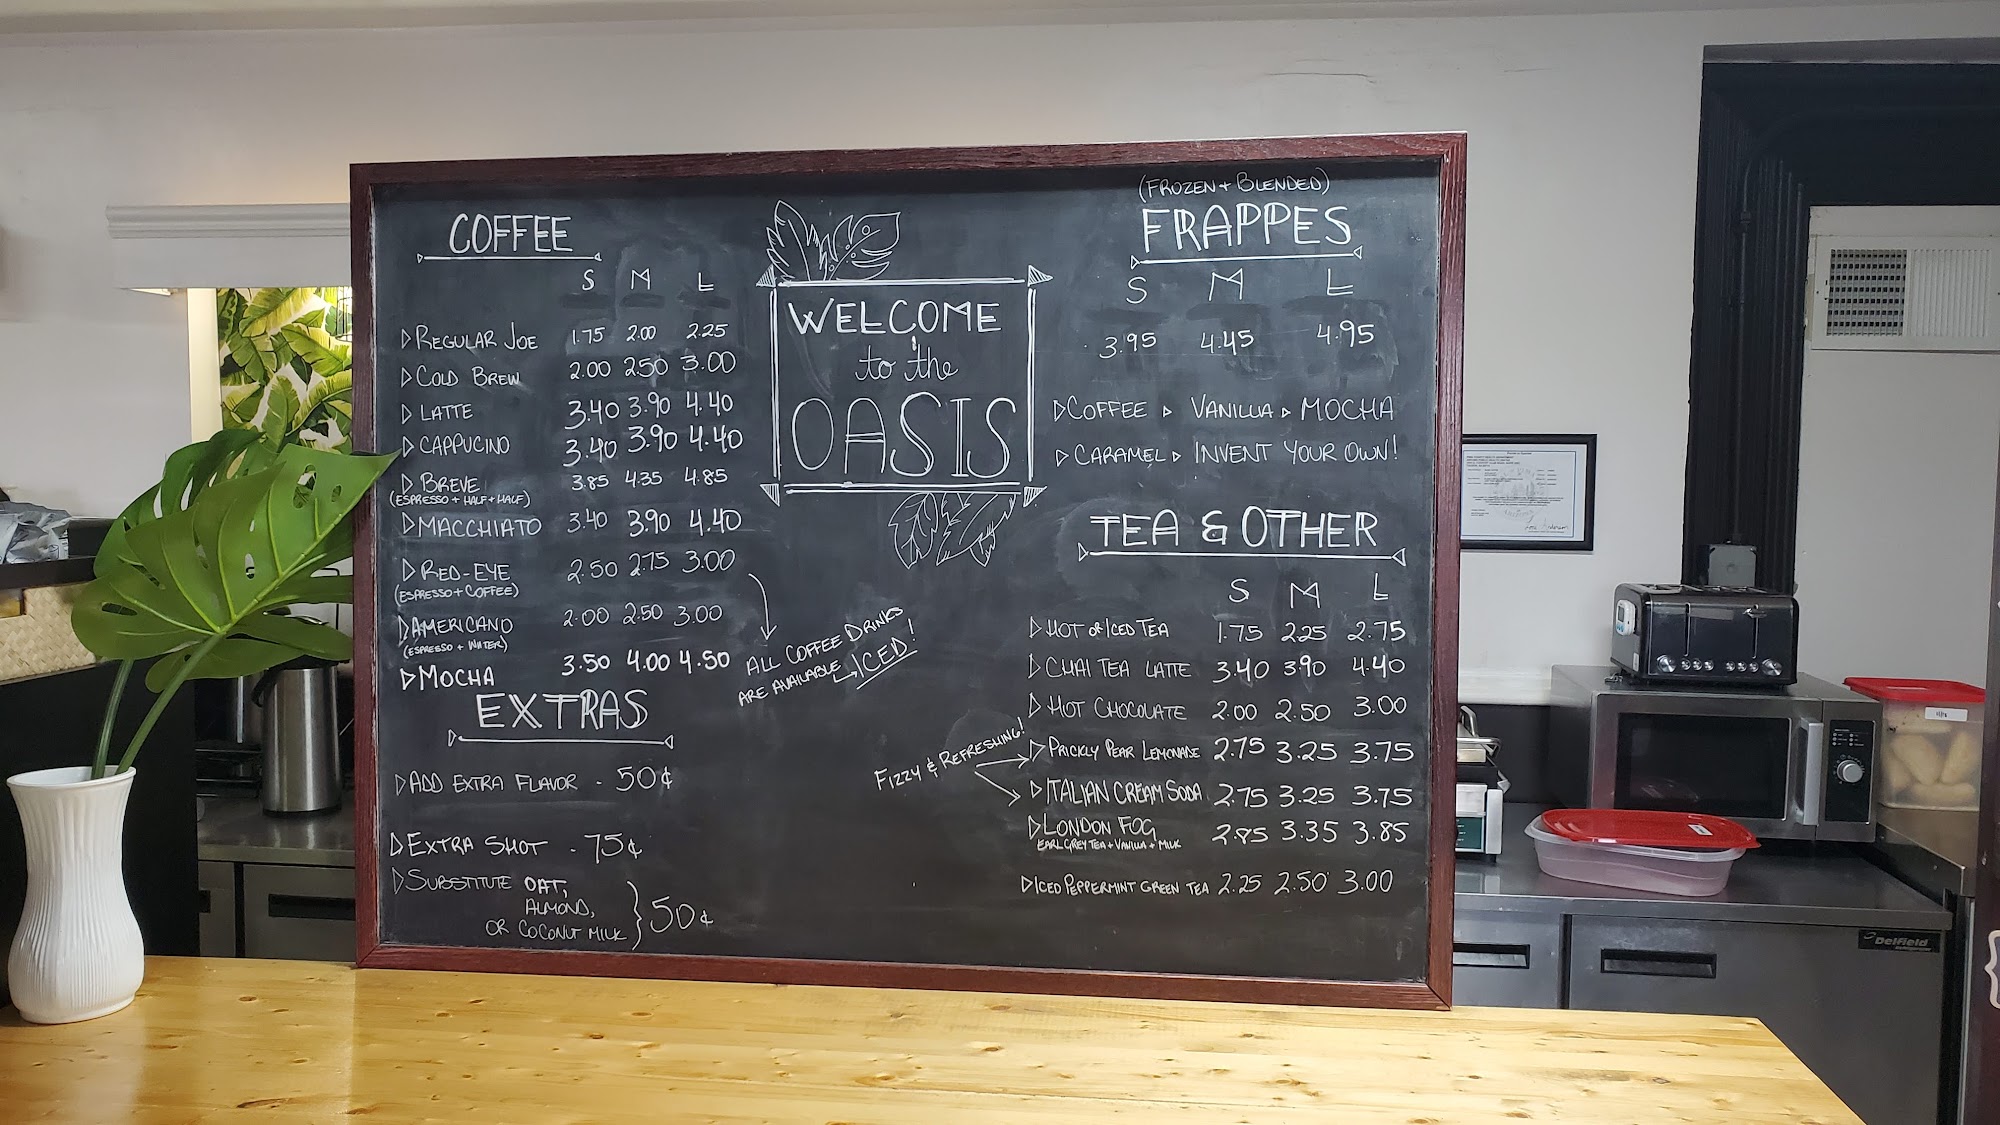 COFFEE
S M L
REGULAR JOE 1.75 2.00 2.25
COLD BREW 2.00 2.50 3.00
LATTE 3.40 3.90 4.40
CAPPUCINO 3.40 3.90 4.40
BREVE 3.85 4.35 4.85
(ESPRESSO + HALF + HALF)
MACCHIATO 3.40 3.90 4.40
RED-EYE 2.50 2.75 3.00
(ESPRESSO + COFFEE)
AMERICANO 2.00 2.50 3.00
(ESPRESSO + WATER)
MOCHA 3.50 4.00 4.50
ALL COFFEE DRINKS
ARE AVAILABLE ICED!
EXTRAS
ADD EXTRA FLAVOR - 50¢
EXTRA SHOT - 75¢
SUBSTITUTE OAT,
ALMOND,
OR COCONUT MILK } 50¢
WELCOME
to the
OASIS
(FROZEN + BLENDED)
FRAPPES
S M L
3.95 4.45 4.95
COFFEE VANILLA MOCHA
CARAMEL INVENT YOUR OWN!
TEA & OTHER
S M L
HOT or ICED TEA 1.75 2.25 2.75
CHAI TEA LATTE 3.40 3.90 4.40
HOT CHOCOLATE 2.00 2.50 3.00
FIZZY & REFRESHING!
PRICKLY PEAR LEMONADE 2.75 3.25 3.75
ITALIAN CREAM SODA 2.75 3.25 3.75
LONDON FOG 2.85 3.35 3.85
EARL GREY TEA + VANILLA + MILK
ICED PEPPERMINT GREEN TEA 2.25 2.50 3.00
Delfield